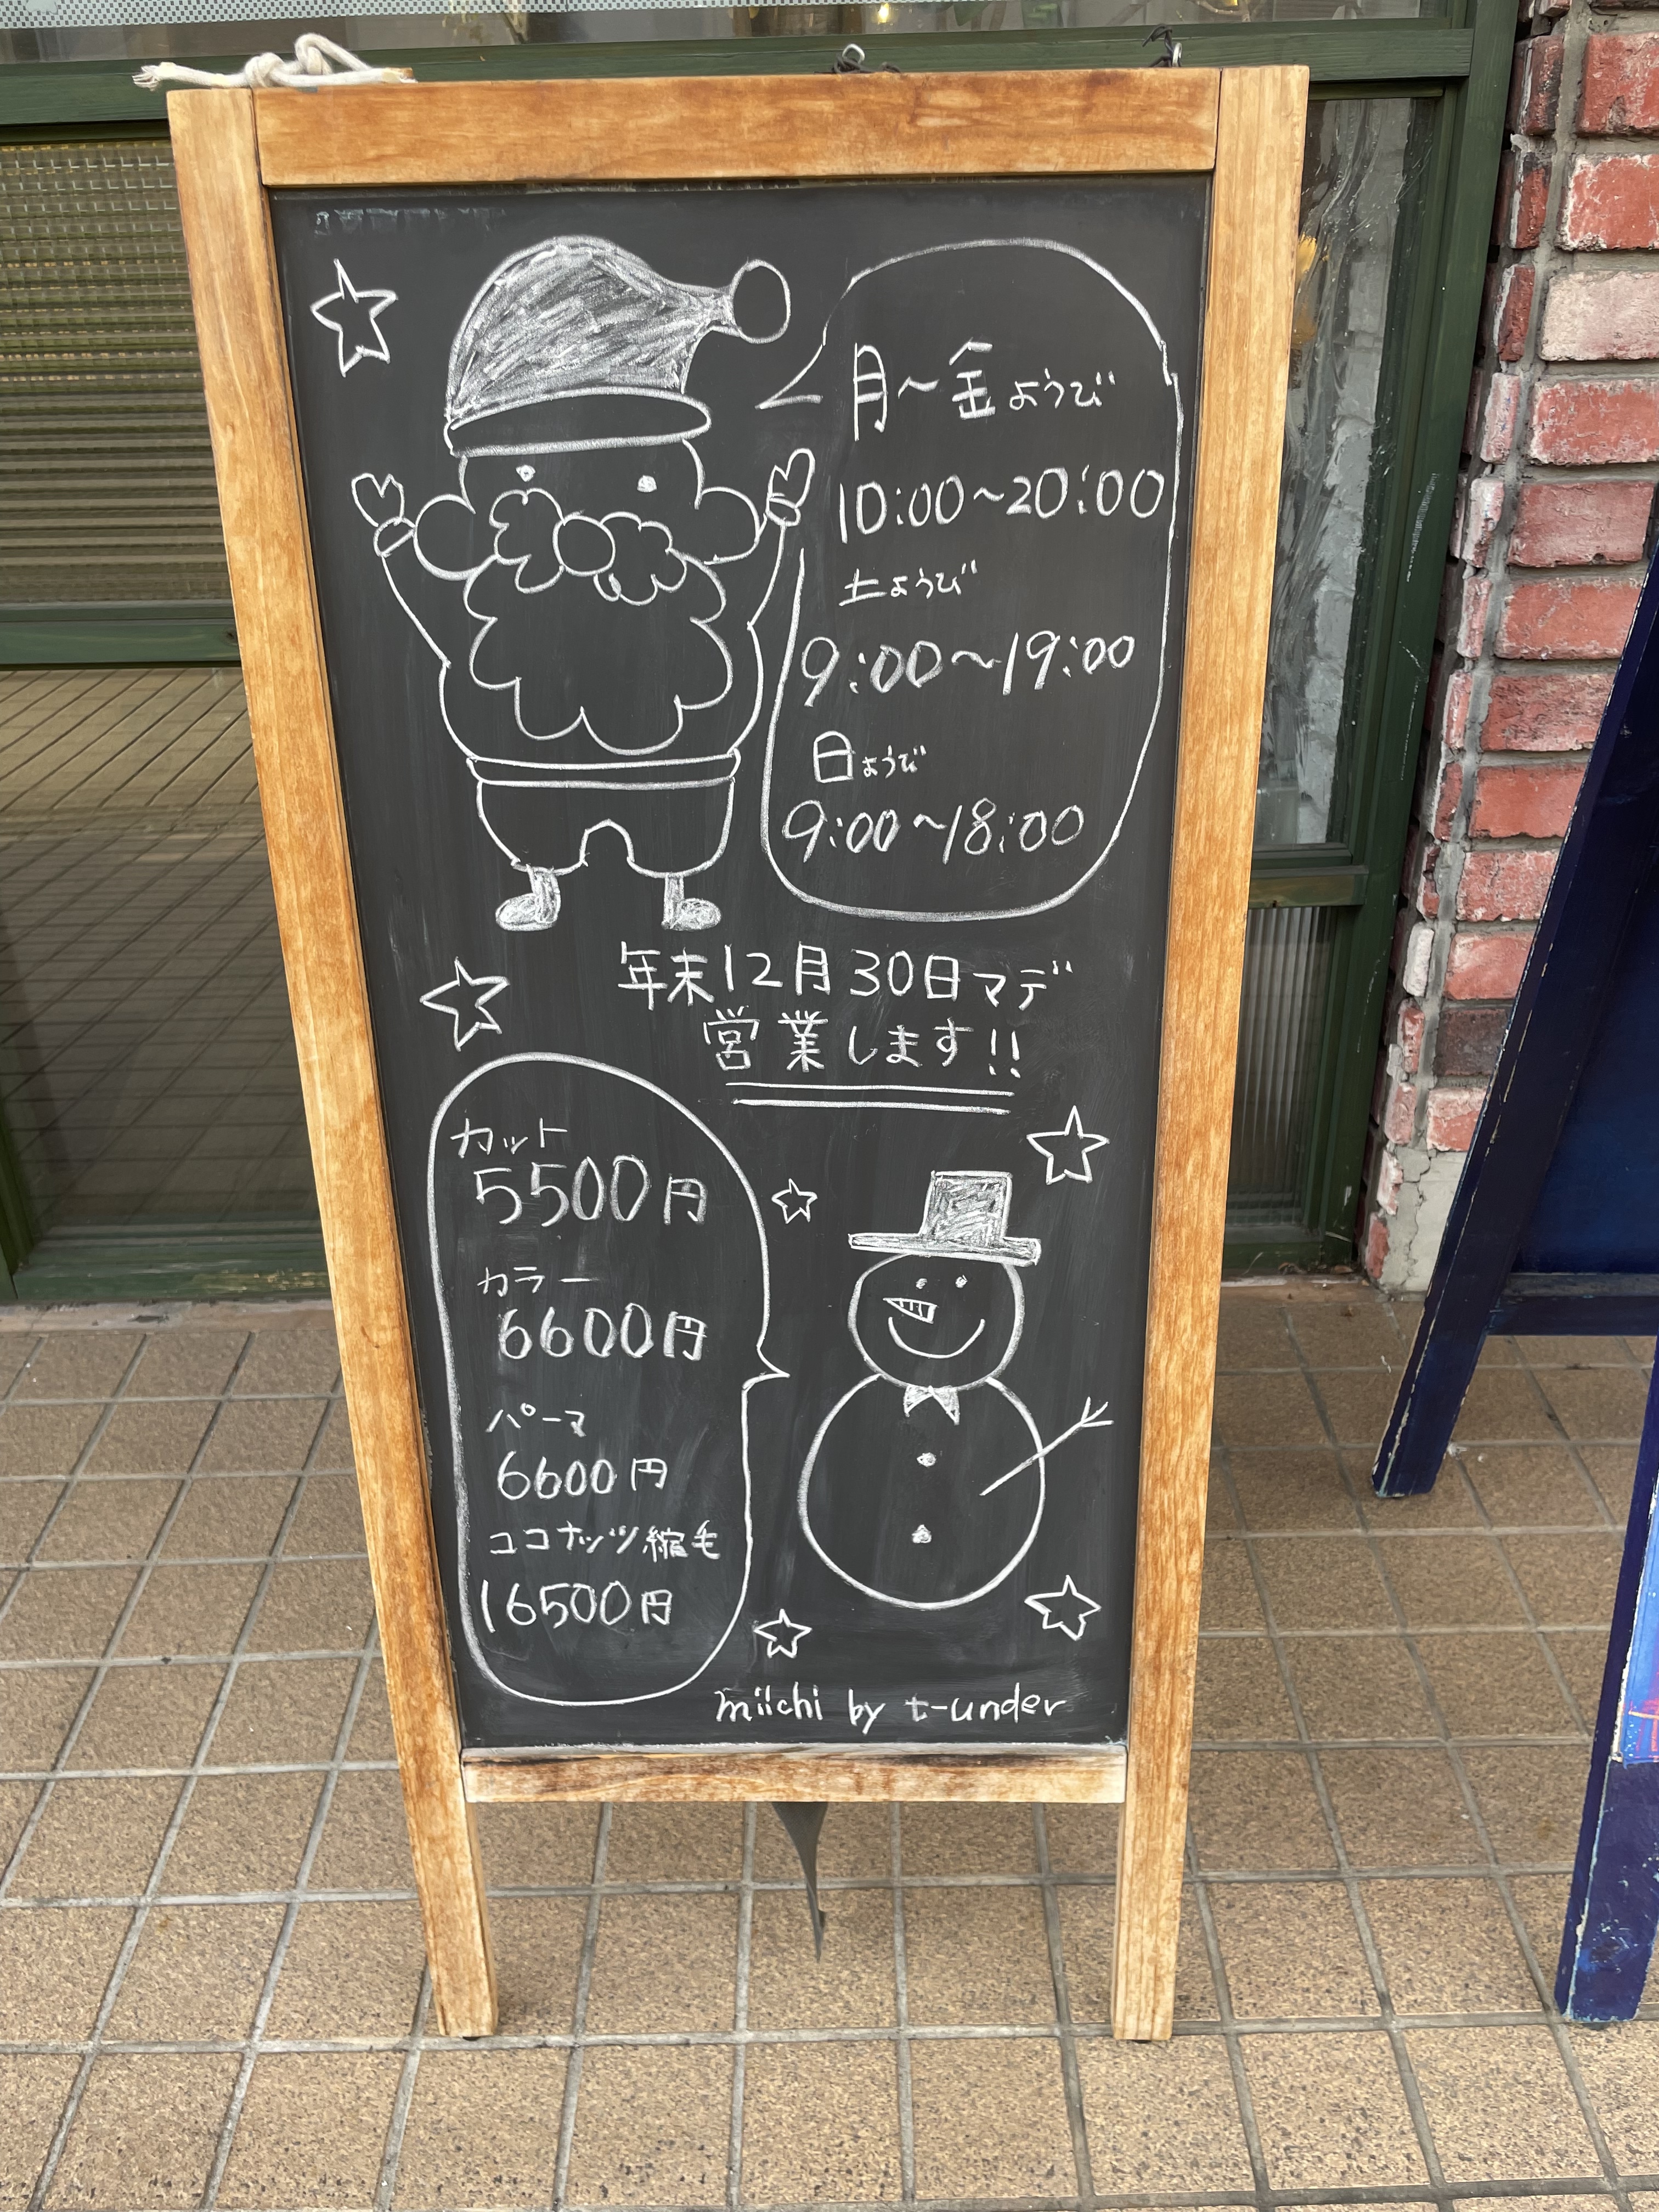 月～金ようび
10:00～20:00
土ようび
9:00～19:00
日ようび
9:00～18:00
年末12月30日マデ
営業します!!
カット
5500円
カラー
6600円
パーマ
6600円
ココナッツ縮毛
16500円
miichi by t-under